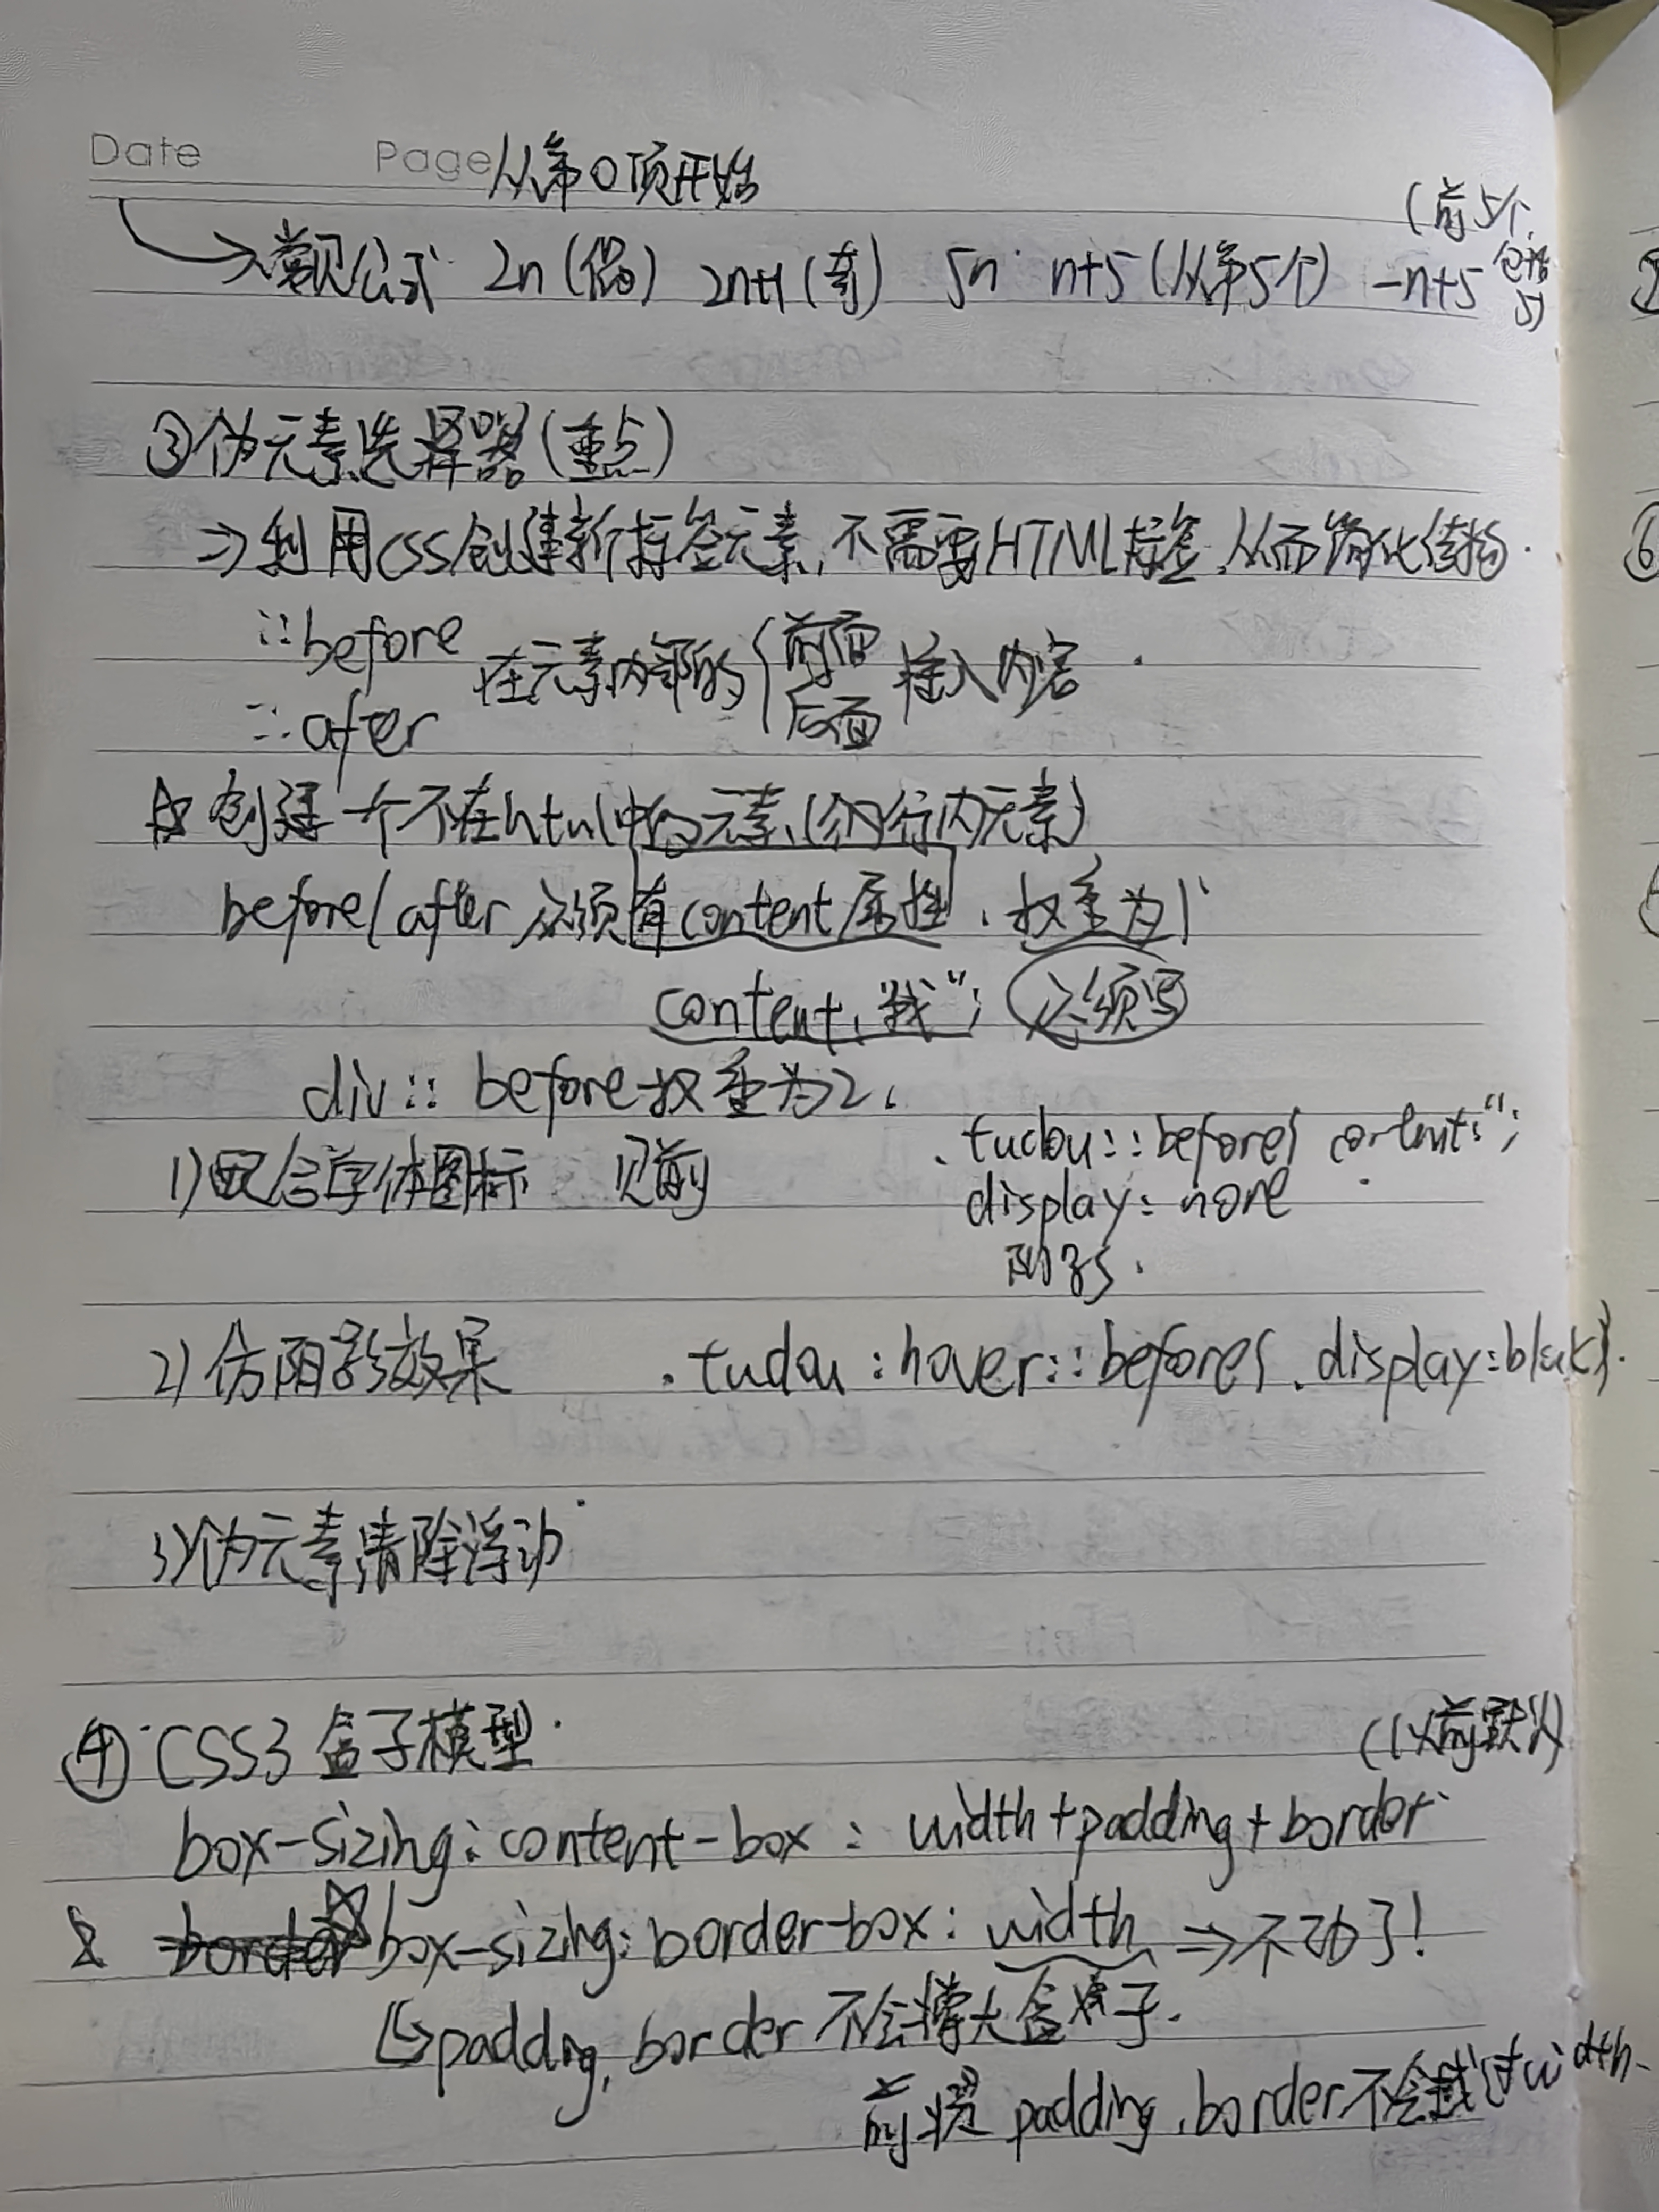 Date Page 从第0项开始
→常见公式 2n(偶) 2n+1(奇) 5n n+5(从第5个) -n+5 (前5个,包括5)
③伪元素选择器(重点)
⇒利用CSS创建新标签元素,不需要HTML标签,从而简化结构.
::before
在元素内部的{前面 插入内容
::after
后面
☆创建一个不在html中的元素(行内元素)
before/after 必须有content属性、权重为1
content:"我"; 必须写
div::before 权重为2.
.tudou::before{ content:'';
1)配合字体图标 见前
display: none
2)仿阴影效果 .tudou:hover::before{ display:block}.
3)伪元素清除浮动
④ CSS3 盒子模型. (以前默认)
box-sizing:content-box: width+padding+border
☆ box-sizing:border-box: width ⇒不动了!
↳padding,border 不会撑大盒子.
前提 padding,border不会越过width.